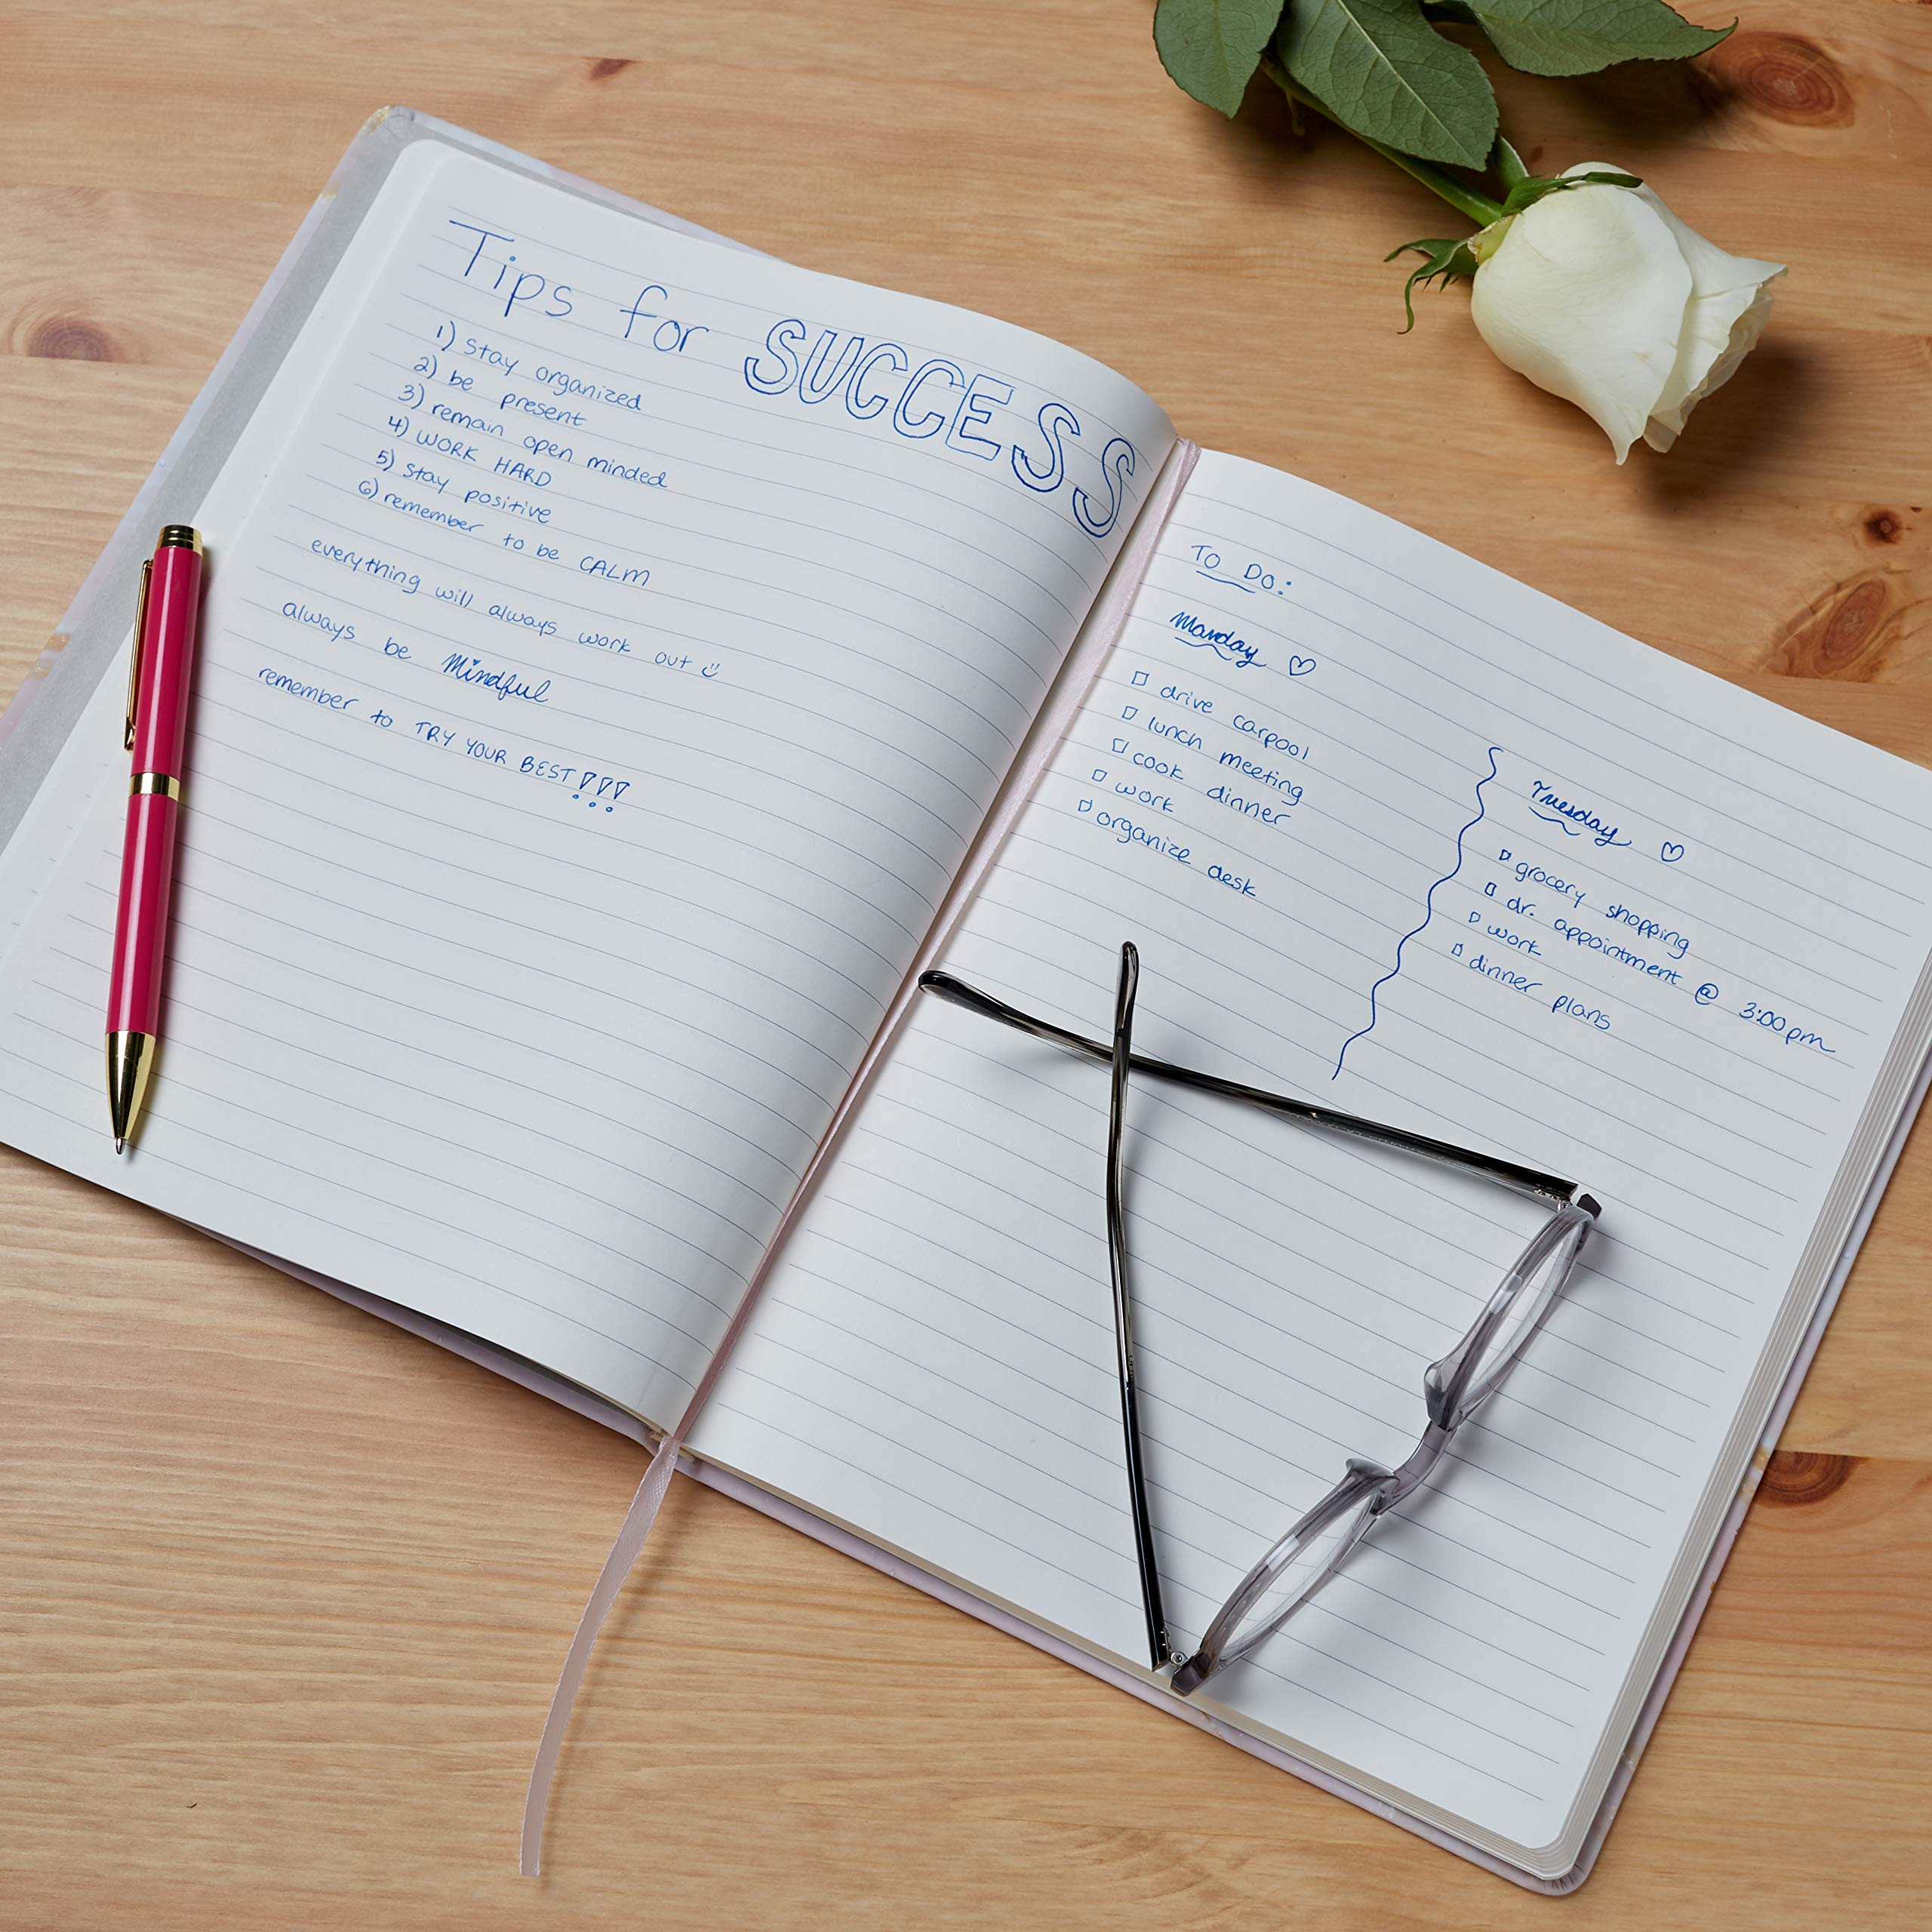 Tips for SUCCESS
1) stay organized
2) be present
3) remain open minded
4) WORK HARD
5) stay positive
6) remember to be CALM
everything will always work out
always be Mindful
remember to TRY YOUR BEST!!!
TO DO:
Monday ♡
drive carpool
lunch meeting
cook dinner
work
organize desk
Tuesday ♡
grocery shopping
dr. appointment @ 3:00pm
work
dinner plans